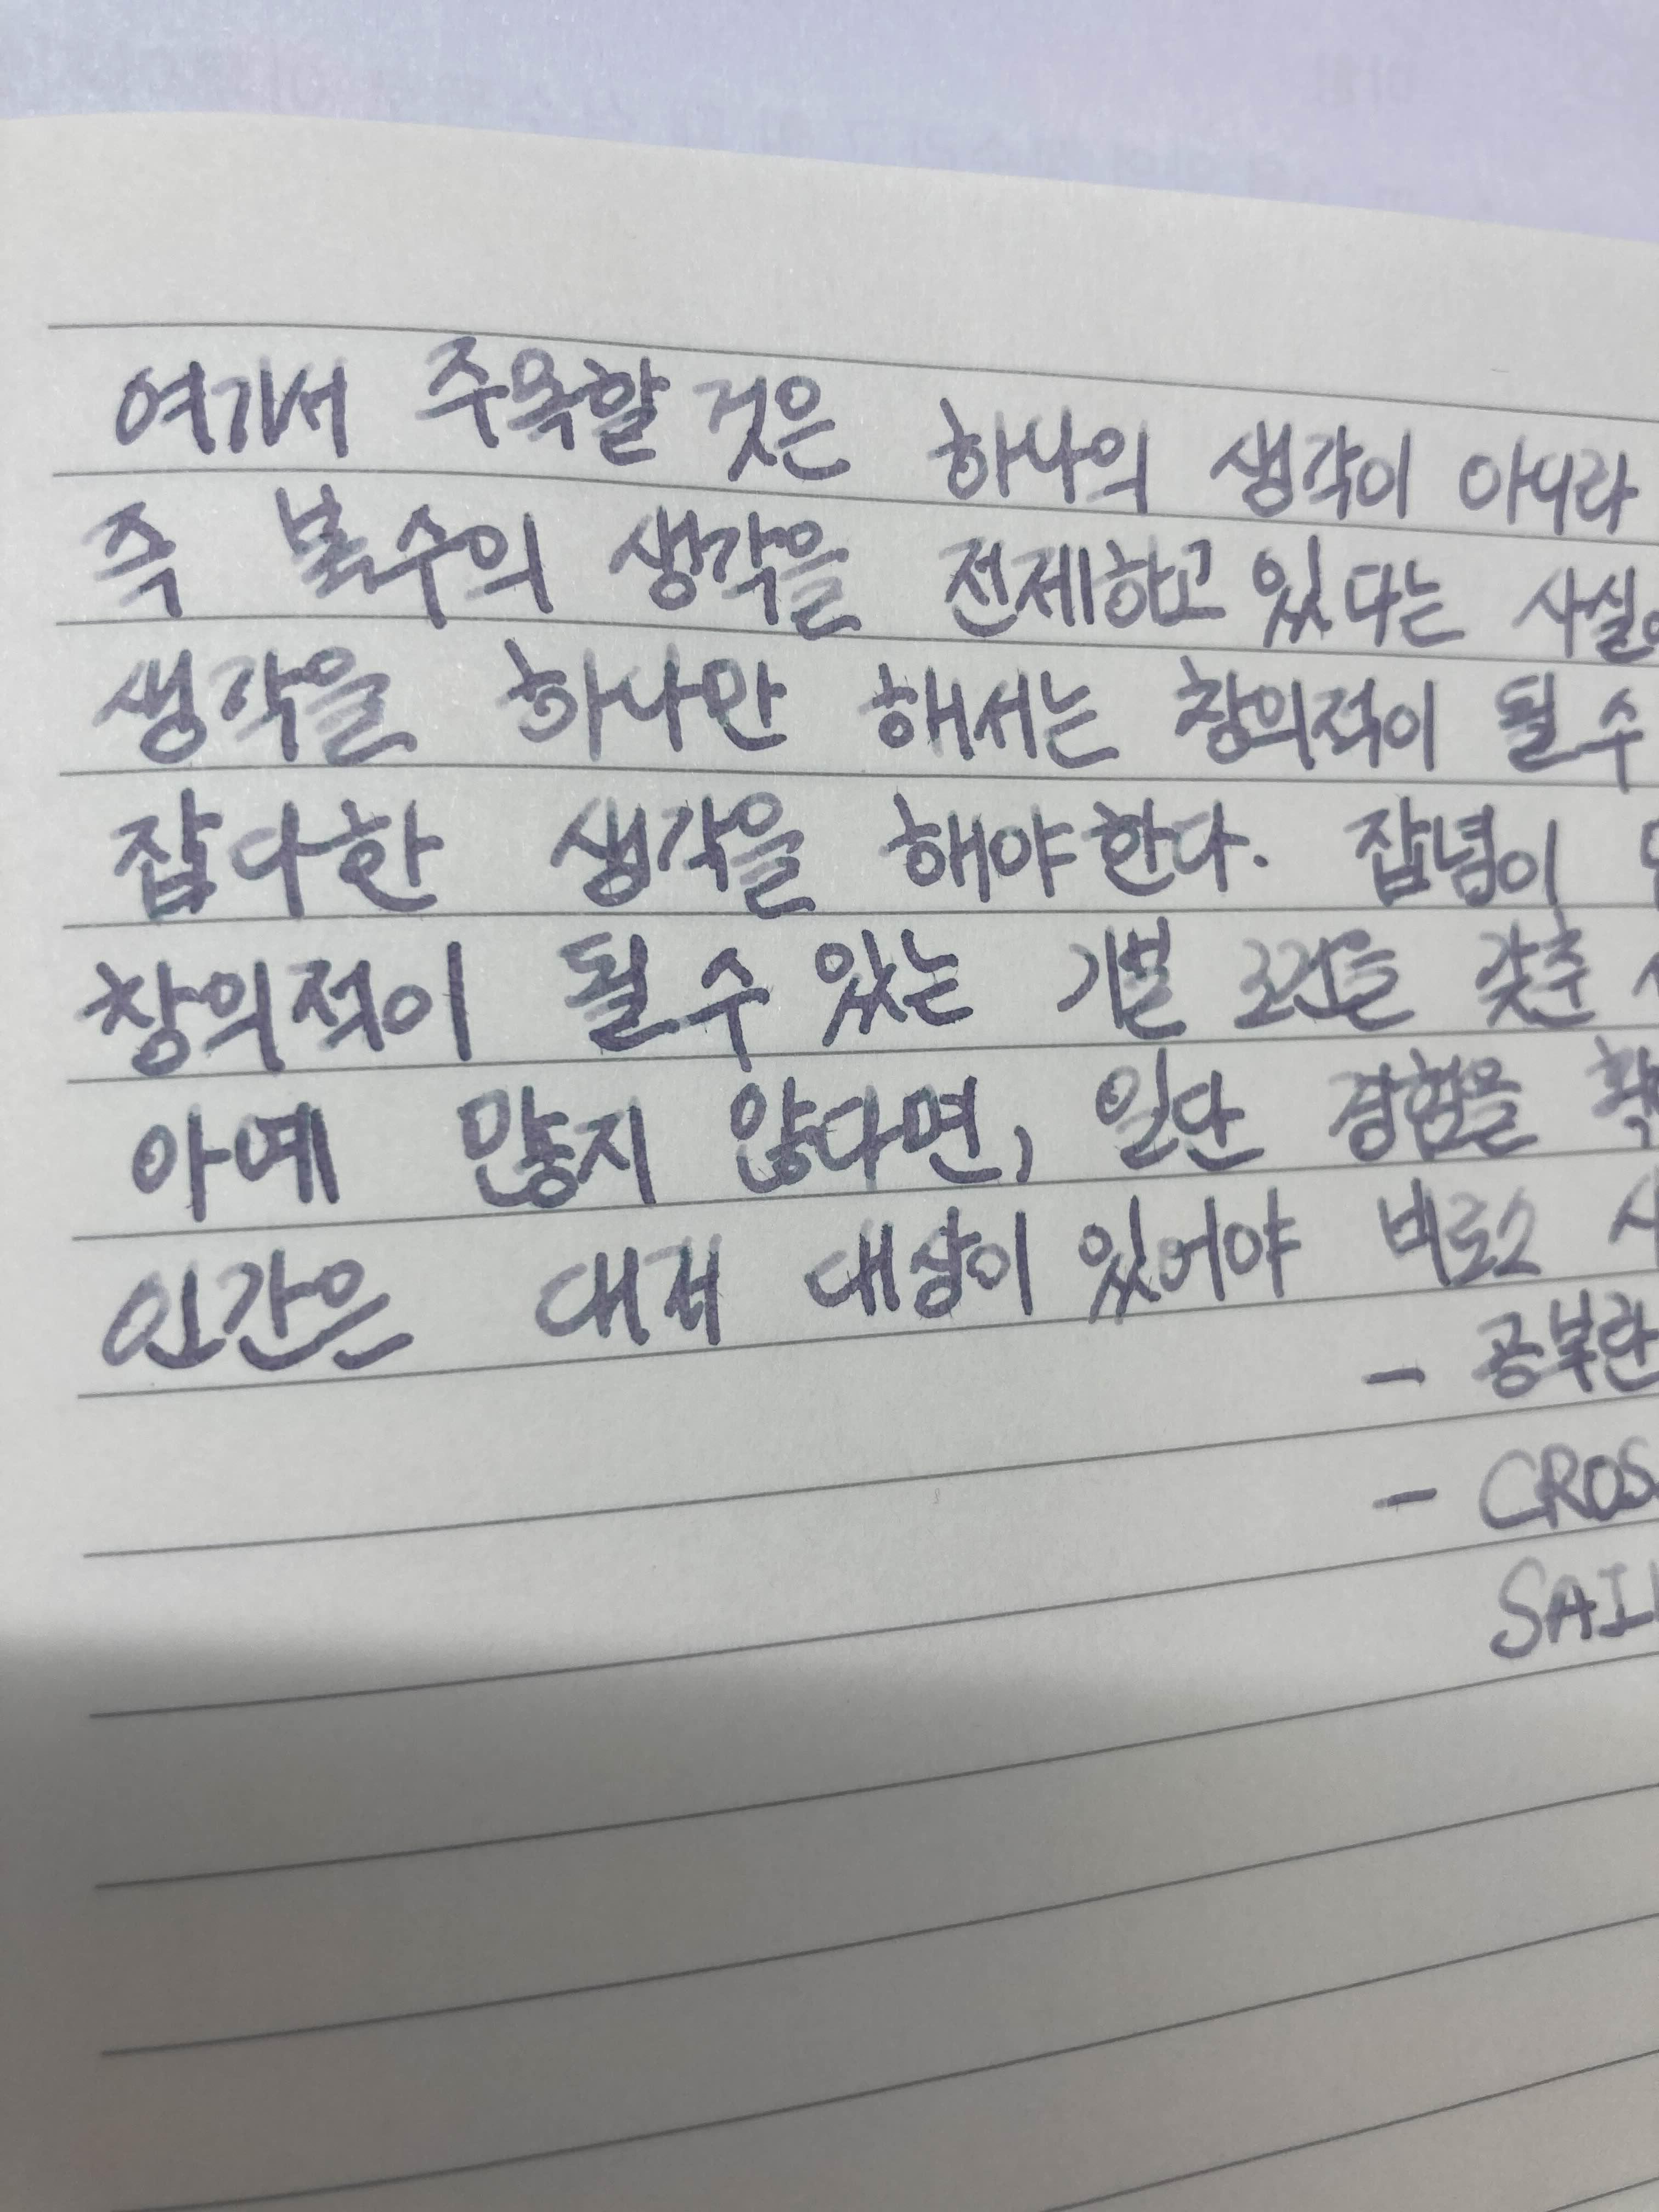 여기서 주목할 것은 하나의 생각이 아니라
즉 복수의 생각을 전제하고 있다는 사실
생각을 하나만 해서는 창의적이 될 수
잡다한 생각을 해야 한다. 잡념이
창의적이 될 수 있는 기본 조건을 갖춘
아예 많지 않다면, 일단 경험을
인간은 대개 대상이 있어야 비로소
- 공부란
- CROS
SAIL